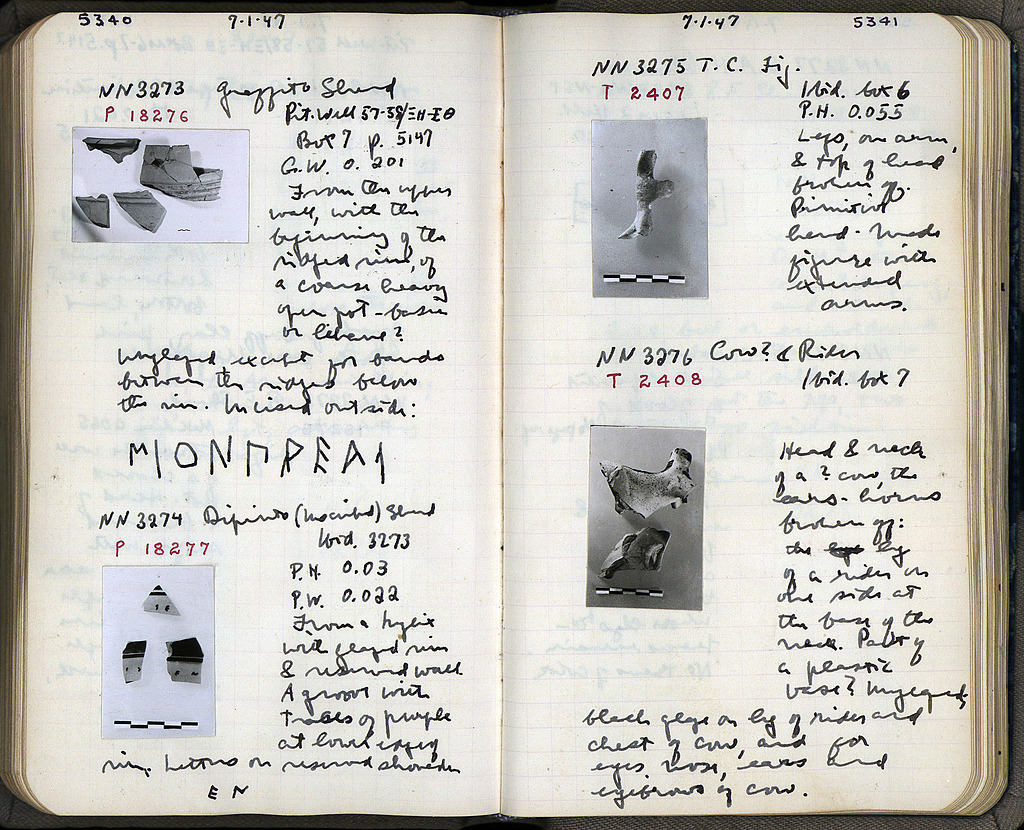 5340 7·1·47
NN 3273 Graffito Sherd
P 18276 Pit. Well 57-58/ΞΗ-ΞΘ
Box 7 p. 5147
G.W. 0.201
From the upper
wall, with the
beginning of the
ridged rim, of
a coarse heavy
open pot - basin
or lekane?
Unglazed except for bands
between the ridges below
the rim. Incised outside:
ΜΙΟΝΠΡΕΑΙ
NN 3274 Dipinto (Inscribed) Sherd
Ibid. 3273
P 18277
P.H. 0.03
P.W. 0.022
From a kylix
with glazed rim
& reserved wall.
A groove with
traces of purple
at lower edge of
rim. Letters on reserved shoulder
E N
7·1·47 5341
NN 3275 T.C. Fig.
T 2407 Ibid. box 6
P.H. 0.055
Legs, one arm,
& top of head
broken off.
Primitive
hand-made
figure with
extended
arms.
NN 3276 Cow? & Rider
T 2408 Ibid. box 7
Head & neck
of a ? cow, the
ears - horns
broken off:
the leg
of a rider on
one side at
the base of the
neck. Part of
a plastic
vase? Unglazed,
black glaze on leg of rider and
chest of cow, and for
eyes, nose, ears and
eyebrows of cow.